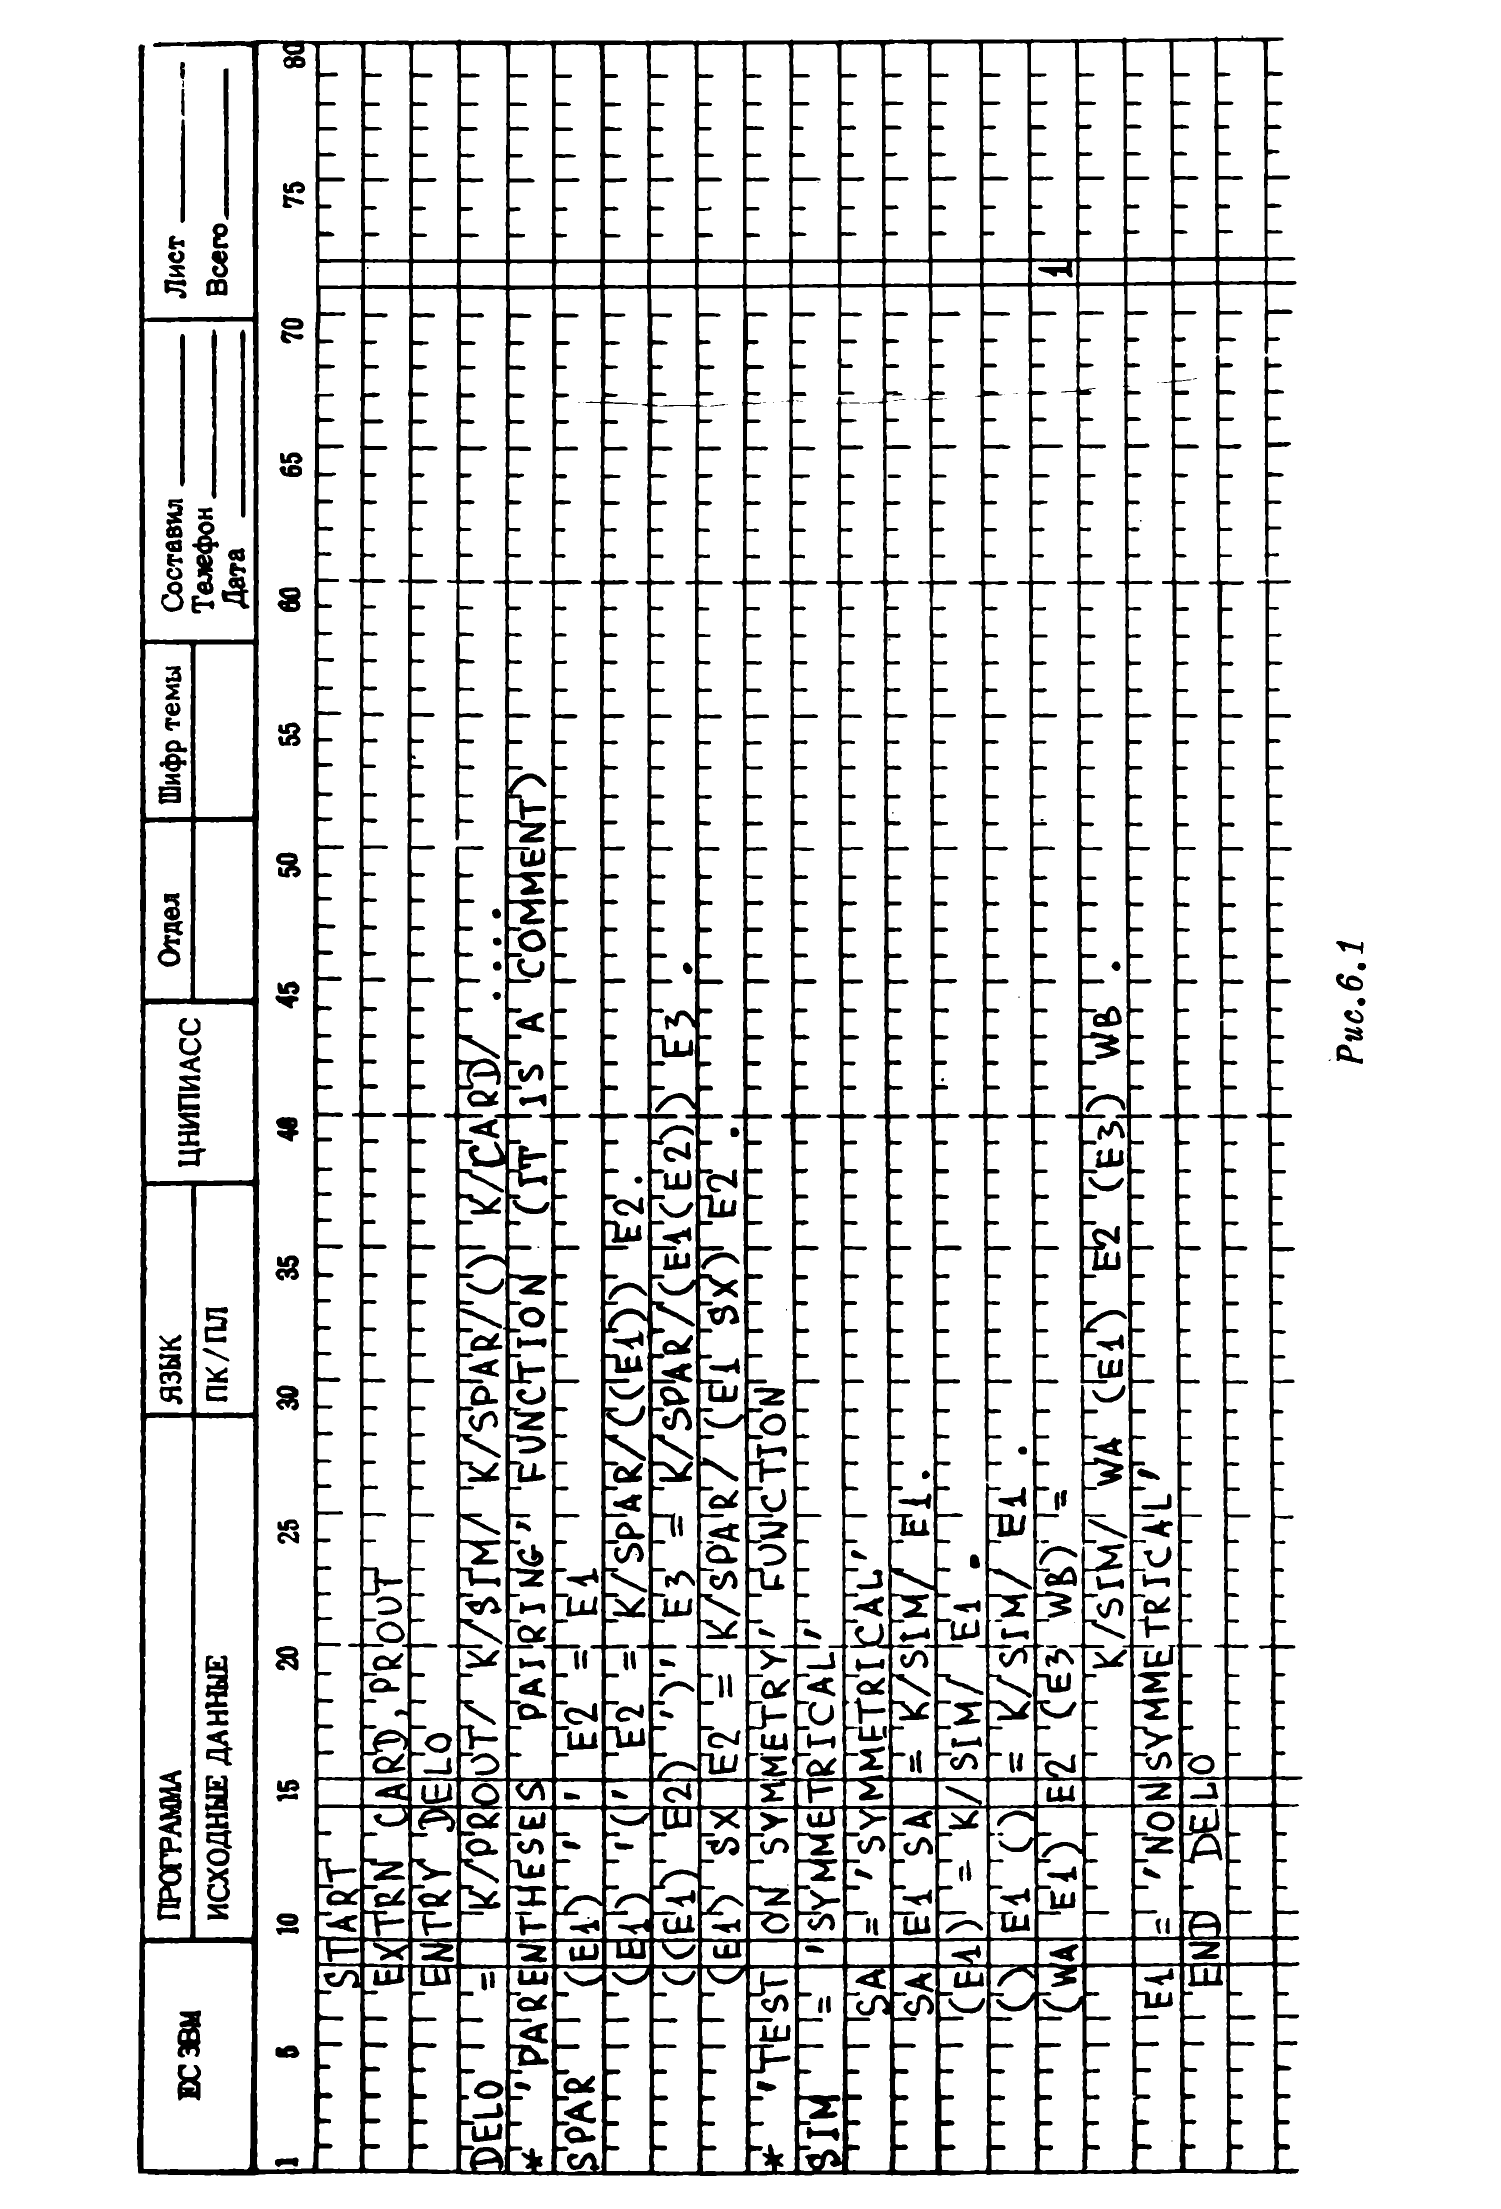 ЕС ЭВМ ПРОГРАММА ЯЗЫК ЦНИПИАСС Отдел Шифр темы Составил Лист
ИСХОДНЫЕ ДАННЫЕ ПК/ПЛ Телефон Всего
Дата
1 5 10 15 20 25 30 35 40 45 50 55 60 65 70 75 80
START
EXTRN CARD,PROUT
ENTRY DELO
DELO = K/PROUT/ K/SIM/ K/SPAR/() K/CARD/ . . . .
* 'PARENTHESES PAIRING' FUNCTION (IT IS A COMMENT)
SPAR (E1) ' ' E2 = E1
(E1) '(' E2 = K/SPAR/((E1)) E2.
((E1) E2) ')' E3 = K/SPAR/(E1(E2)) E3 .
(E1) SX E2 = K/SPAR/ (E1 SX) E2 .
* 'TEST ON SYMMETRY' FUNCTION
SIM = 'SYMMETRICAL'
SA = 'SYMMETRICAL'
SA E1 SA = K/SIM/ E1.
(E1) = K/SIM/ E1 .
() E1 () = K/SIM/ E1 .
(WA E1) E2 (E3 WB) = 1
K/SIM/ WA (E1) E2 (E3) WB .
E1 = 'NONSYMMETRICAL'
END DELO
Рис.6.1